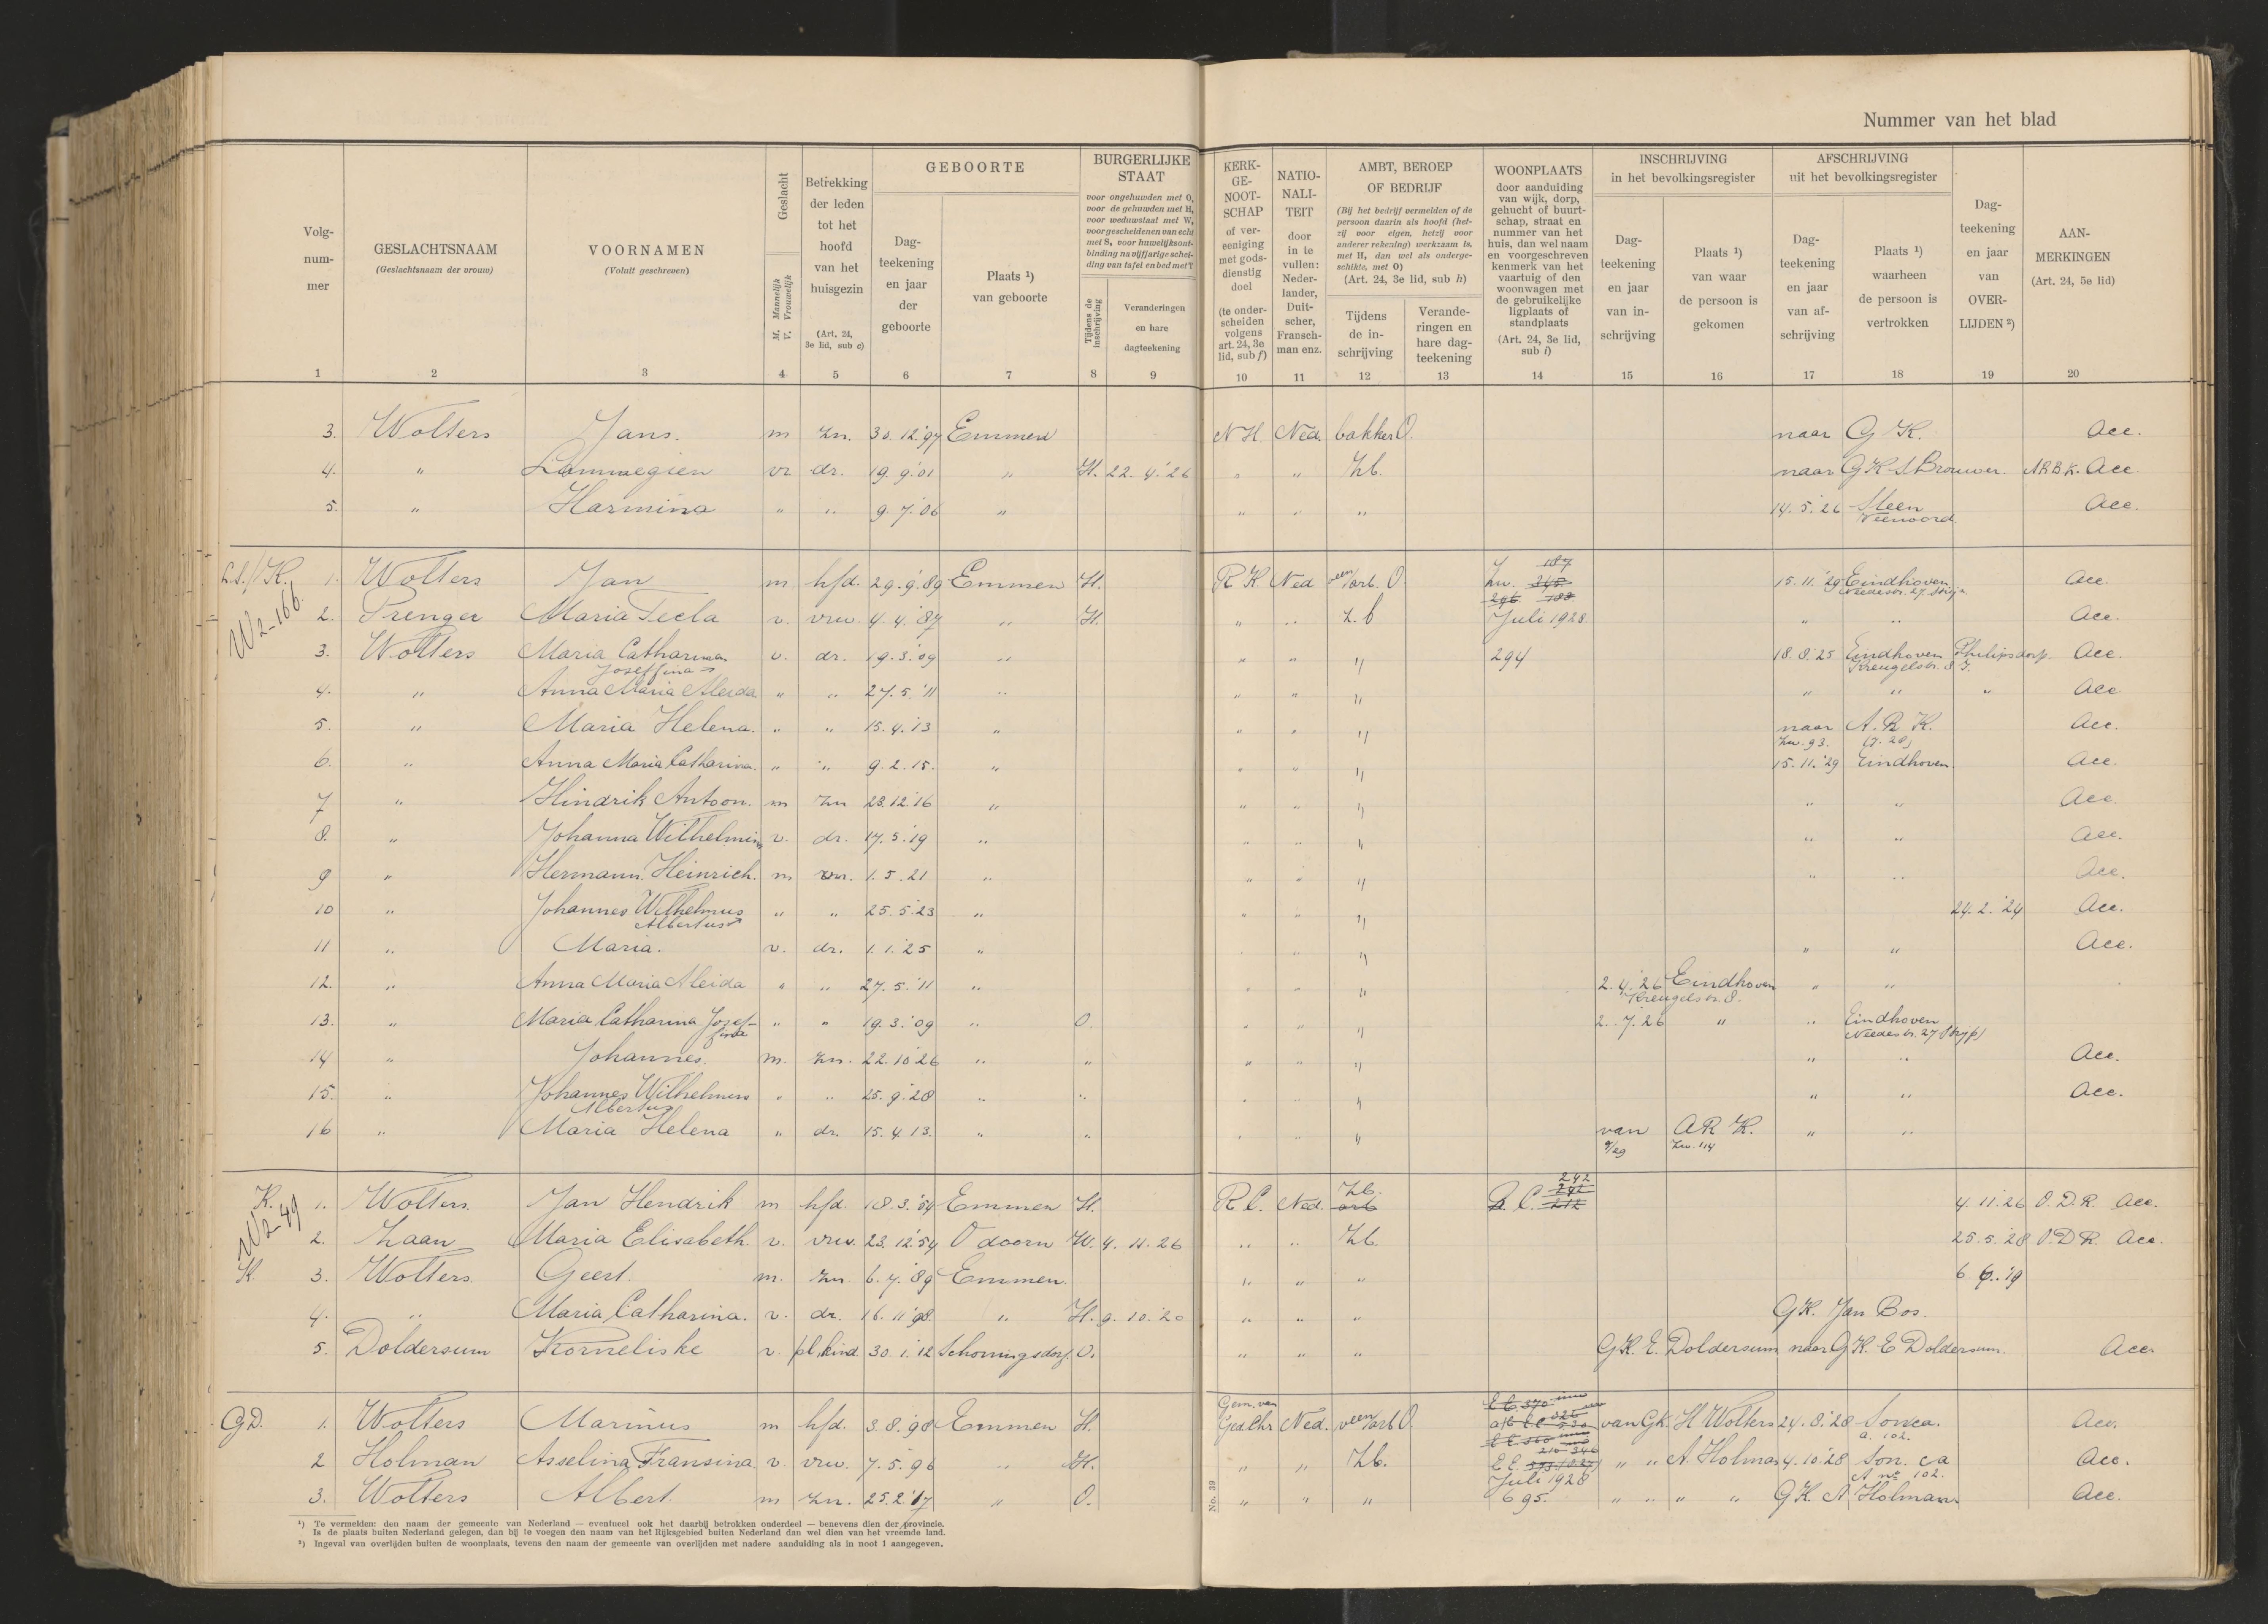 Nummer van het blad
Volg-
num-
mer
GESLACHTSNAAM
(Geslachtsnaam der vrouw)
VOORNAMEN
(Voluit geschreven)
Geslacht
M. Mannelijk
V. Vrouwelijk
Betrekking
der leden
tot het
hoofd
van het
huisgezin
(Art. 24,
3e lid, sub c)
GEBOORTE
Dag-
teekening
en jaar
der
geboorte
Plaats ¹)
van geboorte
BURGERLIJKE
STAAT
voor ongehuwden met O,
voor de gehuwden met H,
voor weduwstaat met W,
voor gescheidenen van echt
met S, voor huwelijksont-
binding na vijfjarige schei-
ding van tafel en bed met T
Tijdens de
inschrijving
Veranderingen
en hare
dagteekening
KERK-
GE-
NOOT-
SCHAP
of ver-
eeniging
met gods-
dienstig
doel
(te onder-
scheiden
volgens
art. 24, 3e
lid, sub f)
NATIO-
NALI-
TEIT
door
in te
vullen:
Neder-
lander,
Duit-
scher,
Fransch-
man enz.
AMBT, BEROEP
OF BEDRIJF
(Bij het bedrijf vermelden of de
persoon daarin als hoofd (het-
zij voor eigen, hetzij voor
anderer rekening) werkzaam is,
met H, dan wel als onderge-
schikte, met O)
(Art. 24, 3e lid, sub h)
Tijdens
de in-
schrijving
Verande-
ringen en
hare dag-
teekening
WOONPLAATS
door aanduiding
van wijk, dorp,
gehucht of buurt-
schap, straat en
nummer van het
huis, dan wel naam
en voorgeschreven
kenmerk van het
vaartuig of den
woonwagen met
de gebruikelijke
ligplaats of
standplaats
(Art. 24, 3e lid,
sub i)
INSCHRIJVING
in het bevolkingsregister
Dag-
teekening
en jaar
van in-
schrijving
Plaats ¹)
van waar
de persoon is
gekomen
AFSCHRIJVING
uit het bevolkingsregister
Dag-
teekening
en jaar
van af-
schrijving
Plaats ¹)
waarheen
de persoon is
vertrokken
Dag-
teekening
en jaar
van
OVER-
LIJDEN ²)
AAN-
MERKINGEN
(Art. 24, 5e lid)
1 2 3 4 5 6 7 8 9 10 11 12 13 14 15 16 17 18 19 20
3. Wolters Jans. m zn. 30.12.'97 Emmen N H. Ned. bakker O. naar G K. Acc.
4. " Lammegien vr dr. 19.9.'01 " H. 22.4.'26 " " Zb. naar G K S Brouwer ARBK. Acc.
5. " Harmina " " 9.7.'06 " " " " 14.5.'26 Sleen Acc.
Veenoord
1. Wolters Jan m hfd. 29.9.'89 Emmen H. R K Ned veen arb. O. 187 15.11.'29 Eindhoven Acc.
Zw. 265
296 188
W2-166.
2. Prenger Maria Tecla v. vrw. 4.4.'87 " H. " " Z. b Juli 1928 " " Acc.
3. Wolters Maria Catharina v. dr. 19.3.'09 " " " " 294 18.8.'25 Eindhoven Philipsdorp Acc.
Joseffina Kreugelstr. 8
4. " Anna Maria Aleida " " 27.5.'11 " " " " " " " Acc.
5. " Maria Helena. " " 15.4.'13 " " " " naar A. R K. Acc.
Zw. 93. (7.28)
6. " Anna Maria Catharina. " " 9.2.'15. " " " " 15.11.'29 Eindhoven Acc.
7 " Hindrik Antoon. m zn 23.12.'16 " " " " " " Acc.
8. " Johanna Wilhelmina v. dr. 17.5.'19 " " " " " " Acc.
9 " Hermann Heinrich. m zn. 1.5.'21 " " " " " " Acc.
10 " Johannes Wilhelmus " " 25.5.'23 " " " " 24.2.'24 Acc.
Albertus
11 " Maria. v. dr. 1.1.'25 " " " " " " Acc.
12. " Anna Maria Aleida " " 27.5.'11 " " " " 2.4.'26 Eindhoven " "
Kreugelstr. 8.
13. " Maria Catharina Jozef- " " 19.3.'09 " O. " " " 2.7.'26 " " Eindhoven
fina
14 " Johannes. m. zn. 22.10.'26 " " " " " " " Acc.
15. " Johannes Wilhelmus " " 25.9.'28 " " " " " " " Acc.
Albertus
16 " Maria Helena " dr. 15.4.13. " " " " " van A R K. " "
9/29 Zw. 114
K. 1. Wolters. Jan Hendrik m hfd. 18.3.'54 Emmen H. R C. Ned. Zb. 242 4.11.26 O.D.R. Acc.
arb C. 242
212
W2-49
2. Zaan Maria Elisabeth. v. vrw. 23.12.'54 Odoorn W. 4.11.26 " " Zb. 25.5.'28 O.D R. Acc.
K 3. Wolters. Geert. m. zn. 6.7.'89 Emmen. " " " 6.6.'19
4. " Maria Catharina. v. dr. 16.11.'98 " H. 9.10.'20 " " " GK. Jan Bos.
5. Doldersum Korneliske v. pl. kind. 30.1.12 Schoningsdorf. O. " " " GK. E. Doldersum naar G K. E Doldersum. Acc.
GD. 1. Wolters Marinus m hfd. 3.8.'98 Emmen H. Gem. van Ned. veen arb O. van GK. H Wolters 24.8.'28 Acc.
Ged. Chr. a. 102.
2 Holman Asselina Fransina v. vrw. 7.5.'96 " H. " " Zb. E E. " " A. Holman 4.10.'28 Son. ca Acc.
Juli 1928 A no 102.
3. Wolters Albert. m zn. 25.2.'17 " O. " " " 695. " " " " G K. A Holman. Acc.
No. 39
¹) Te vermelden: den naam der gemeente van Nederland — eventueel ook het daarbij betrokken onderdeel — benevens dien der provincie.
Is de plaats buiten Nederland gelegen, dan bij te voegen den naam van het Rijksgebied buiten Nederland dan wel dien van het vreemde land.
²) Ingeval van overlijden buiten de woonplaats, tevens den naam der gemeente van overlijden met nadere aanduiding als in noot 1 aangegeven.